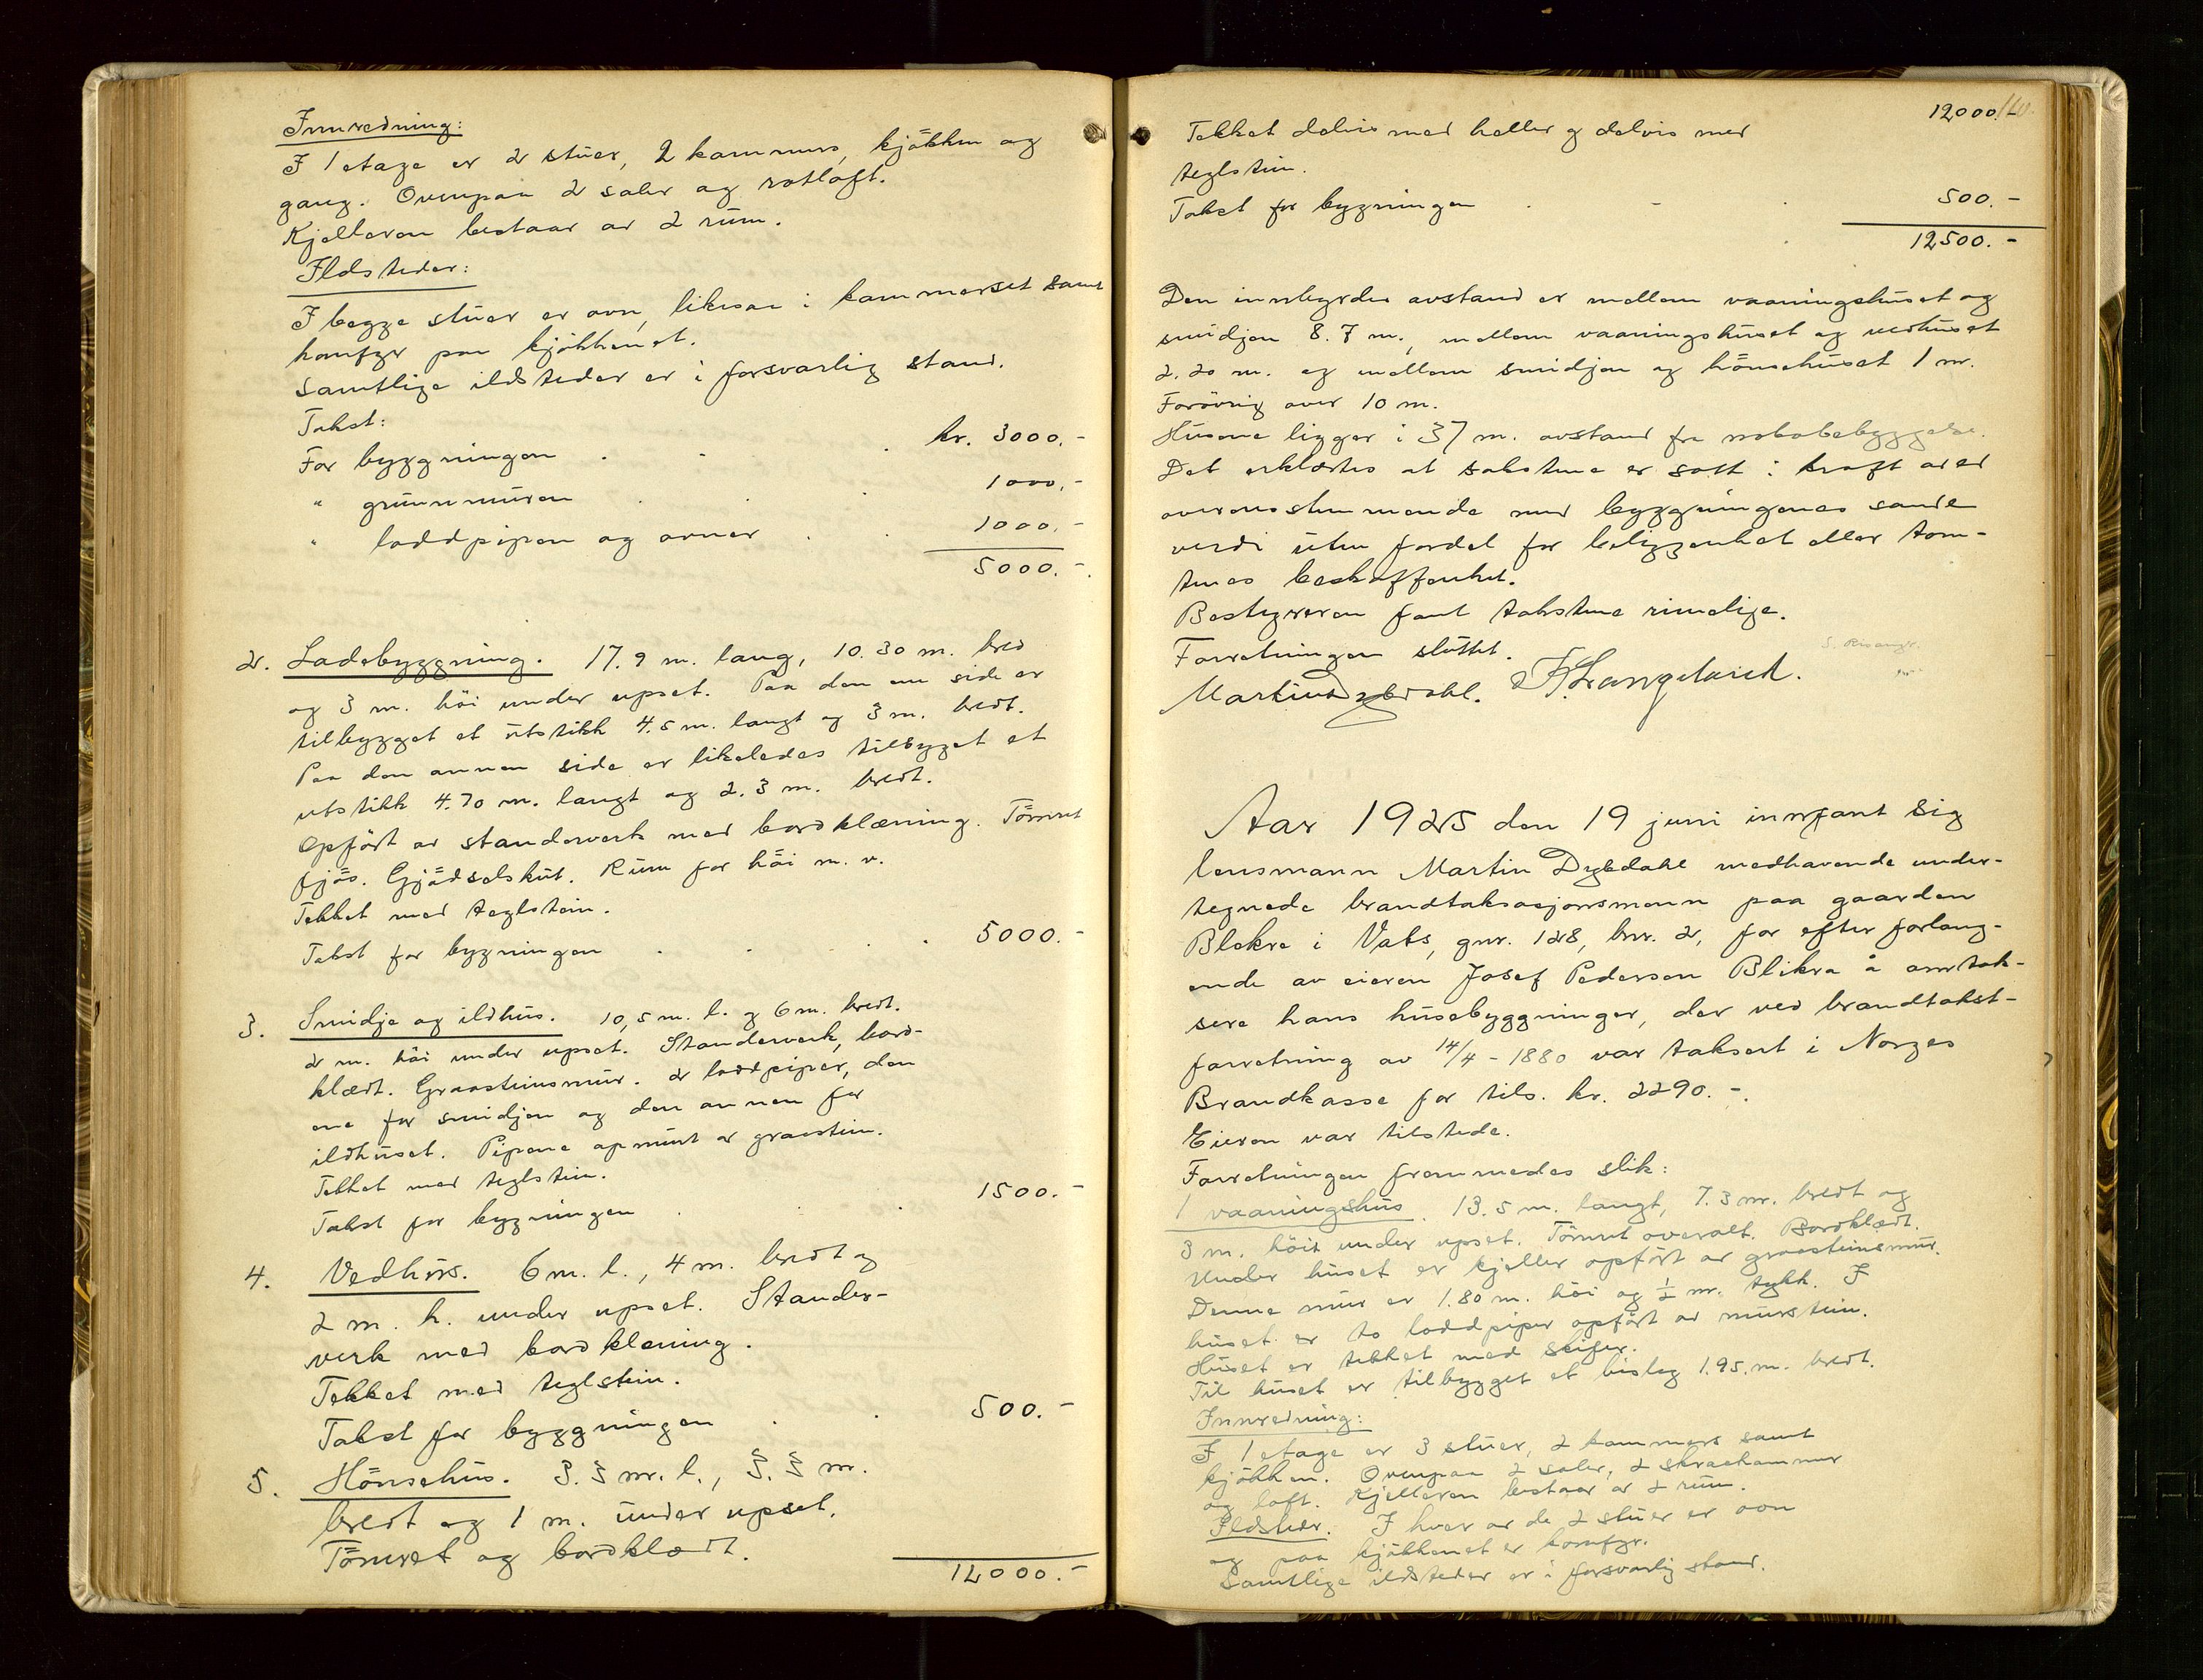 Innredning:
I 1 etage er 2 stuer, 2 kammers, kjökken og
gang. Ovenpaa 2 saler og rotloft.
Kjelleren bestaar av 2 rum.
Ildsteder:
I begge stuer er ovn, likesaa i kammerset samt
komfyr paa kjökkenet.
Samtlige ildsteder er i forsvarlig stand.
Takst:
For byggningen . . . kr. 3000.-
" grunnmuren . . . 1000.-
" loddpipen og ovner . . 1000.-
5000.-
2. Ladebyggning. 17.9 m. lang, 10.30 m. bred
og 3 m. höi under upset. Paa den ene side er
tilbygget et utstikk 4.5 m. langt og 3 m. bredt.
Paa den annen side er likeledes tilbygget et
utstikk 4.70 m. langt og 2.3 m. bredt.
Opfört av standerverk med bordklæning. Tömret
fjös. Gjödselskut. Rum for höi m. v.
Tekket med teglstein.
Takst for bygningen . . . . 5000.-
3. Smidje og ildhus. 10,5 m. l. og 6 m. bredt.
2 m. höi under upset. Standerverk, bord-
klædt. Graasteinsmur. 2 loddpiper, den
ene for smidjen og den annen for
ildhuset. Pipene opmurt av graastein.
Tekket med teglstein.
Takst for bygningen . . . 1500.-
4. Vedhus. 6 m. l., 4 m. bredt og
2 m. h. under upset. Stander-
verk med bordklæning.
Tekket med teglstein.
Takst for byggningen . . 500.-
5. Hönsehus. 3.3 m. l., 3.3 m.
bredt og 1 m. under upset.
Tömret og bordklædt.
12000.-
12000.-
Tekket delvis med heller og delvis med
teglstein.
Takst for bygningen . - . 500.-
12500.-
Den innbyrdes avstand er mellem vaaningshuset og
smidjen 8.7 m., mellem vaaningshuset og vedhuset
2.20 m. og mellem smidjen og hönsehuset 1 m.
Forövrig over 10 m.
Husene ligger i 37 m. avstand fra nabobebyggelse.
Det erklærtes at takstene er satt i kraft av ed
overensstemmende med byggningenes sande
verdi uten fordel for beliggenhet eller tom-
tenes beskaffenhet.
Bestyreren fant takstene rimelige.
Forretningen sluttet.
Martin Dybdahl.
Aar 1925 den 19 juni innfant sig
lensmann Martin Dybdahl medhavende under-
tegnede brandtaksasjonsmenn paa gaarden
Blekra i Vats, gnr. 128, bnr. 2, for efter forlang-
ende av eieren Josef Pedersen Blikra å omtak-
sere hans husebyggninger, der ved brandtakst-
forretning av 14/4 - 1880 var taksert i Norges
Brandkasse for tils. kr. 2290.-.
Eieren var tilstede.
Forretningen fremmedes slik:
1 vaaningshus. 13.5 m. langt, 7.3 m. bredt og
3 m. höit under upset. Tömret overalt. Bordklædt.
Under huset er kjeller opfört av graasteinsmur.
Denne mur er 1.80 m. höi og ½ m. tykk. I
huset er to loddpiper opfört av murstein.
Huset er tekket med skifer.
Til huset er tilbygget et bislag 1.95 m. bredt.
Innredning:
I 1 etage er 3 stuer, 2 kammers samt
kjökken. Ovenpaa 2 saler, 2 skraakammer
og loft. Kjelleren bestaar av 2 rum.
Ildsteder. I hver av de 2 stuer er ovn
og paa kjökkenet er komfyr.
Samtlige ildsteder er i forsvarlig stand.